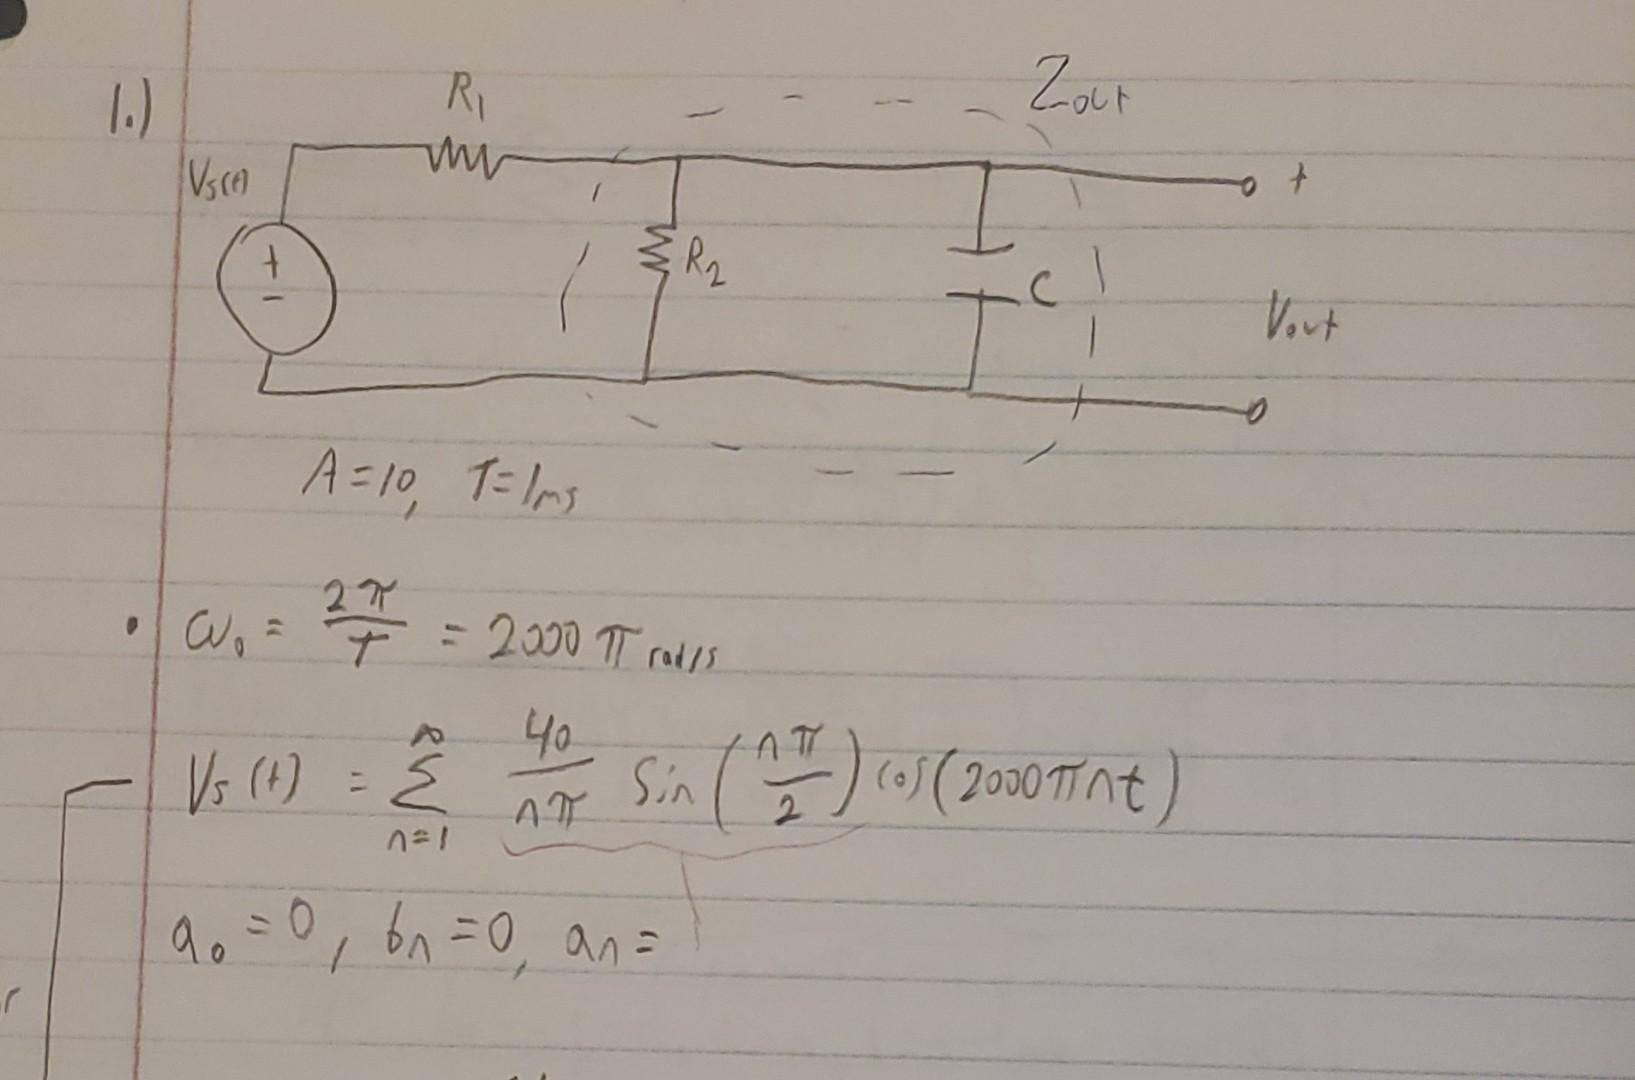 1.)
R₁
Zout
Vs(t)
+
-
R₂
C
+
Vout
A=10, T=1ms
• ω₀ = 2π/T = 2000 π rad/s
Vs (t) = ∑_{n=1}^{∞} 40/nπ Sin(nπ/2) cos(2000πnt)
a₀ = 0, bn = 0, an =
r